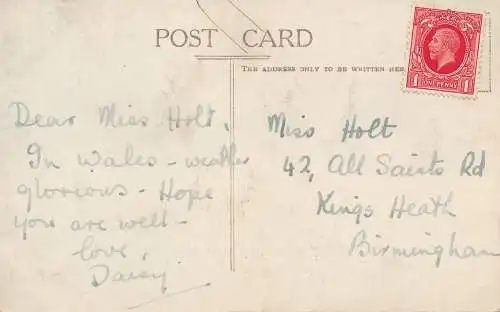 POST CARD
THE ADDRESS ONLY TO BE WRITTEN HER
ONE PENNY
Dear Miss Holt,
In Wales - weather
glorious - Hope
you are well -
love,
Daisy
Miss Holt
42, All Saints Rd
Kings Heath
Birmingham